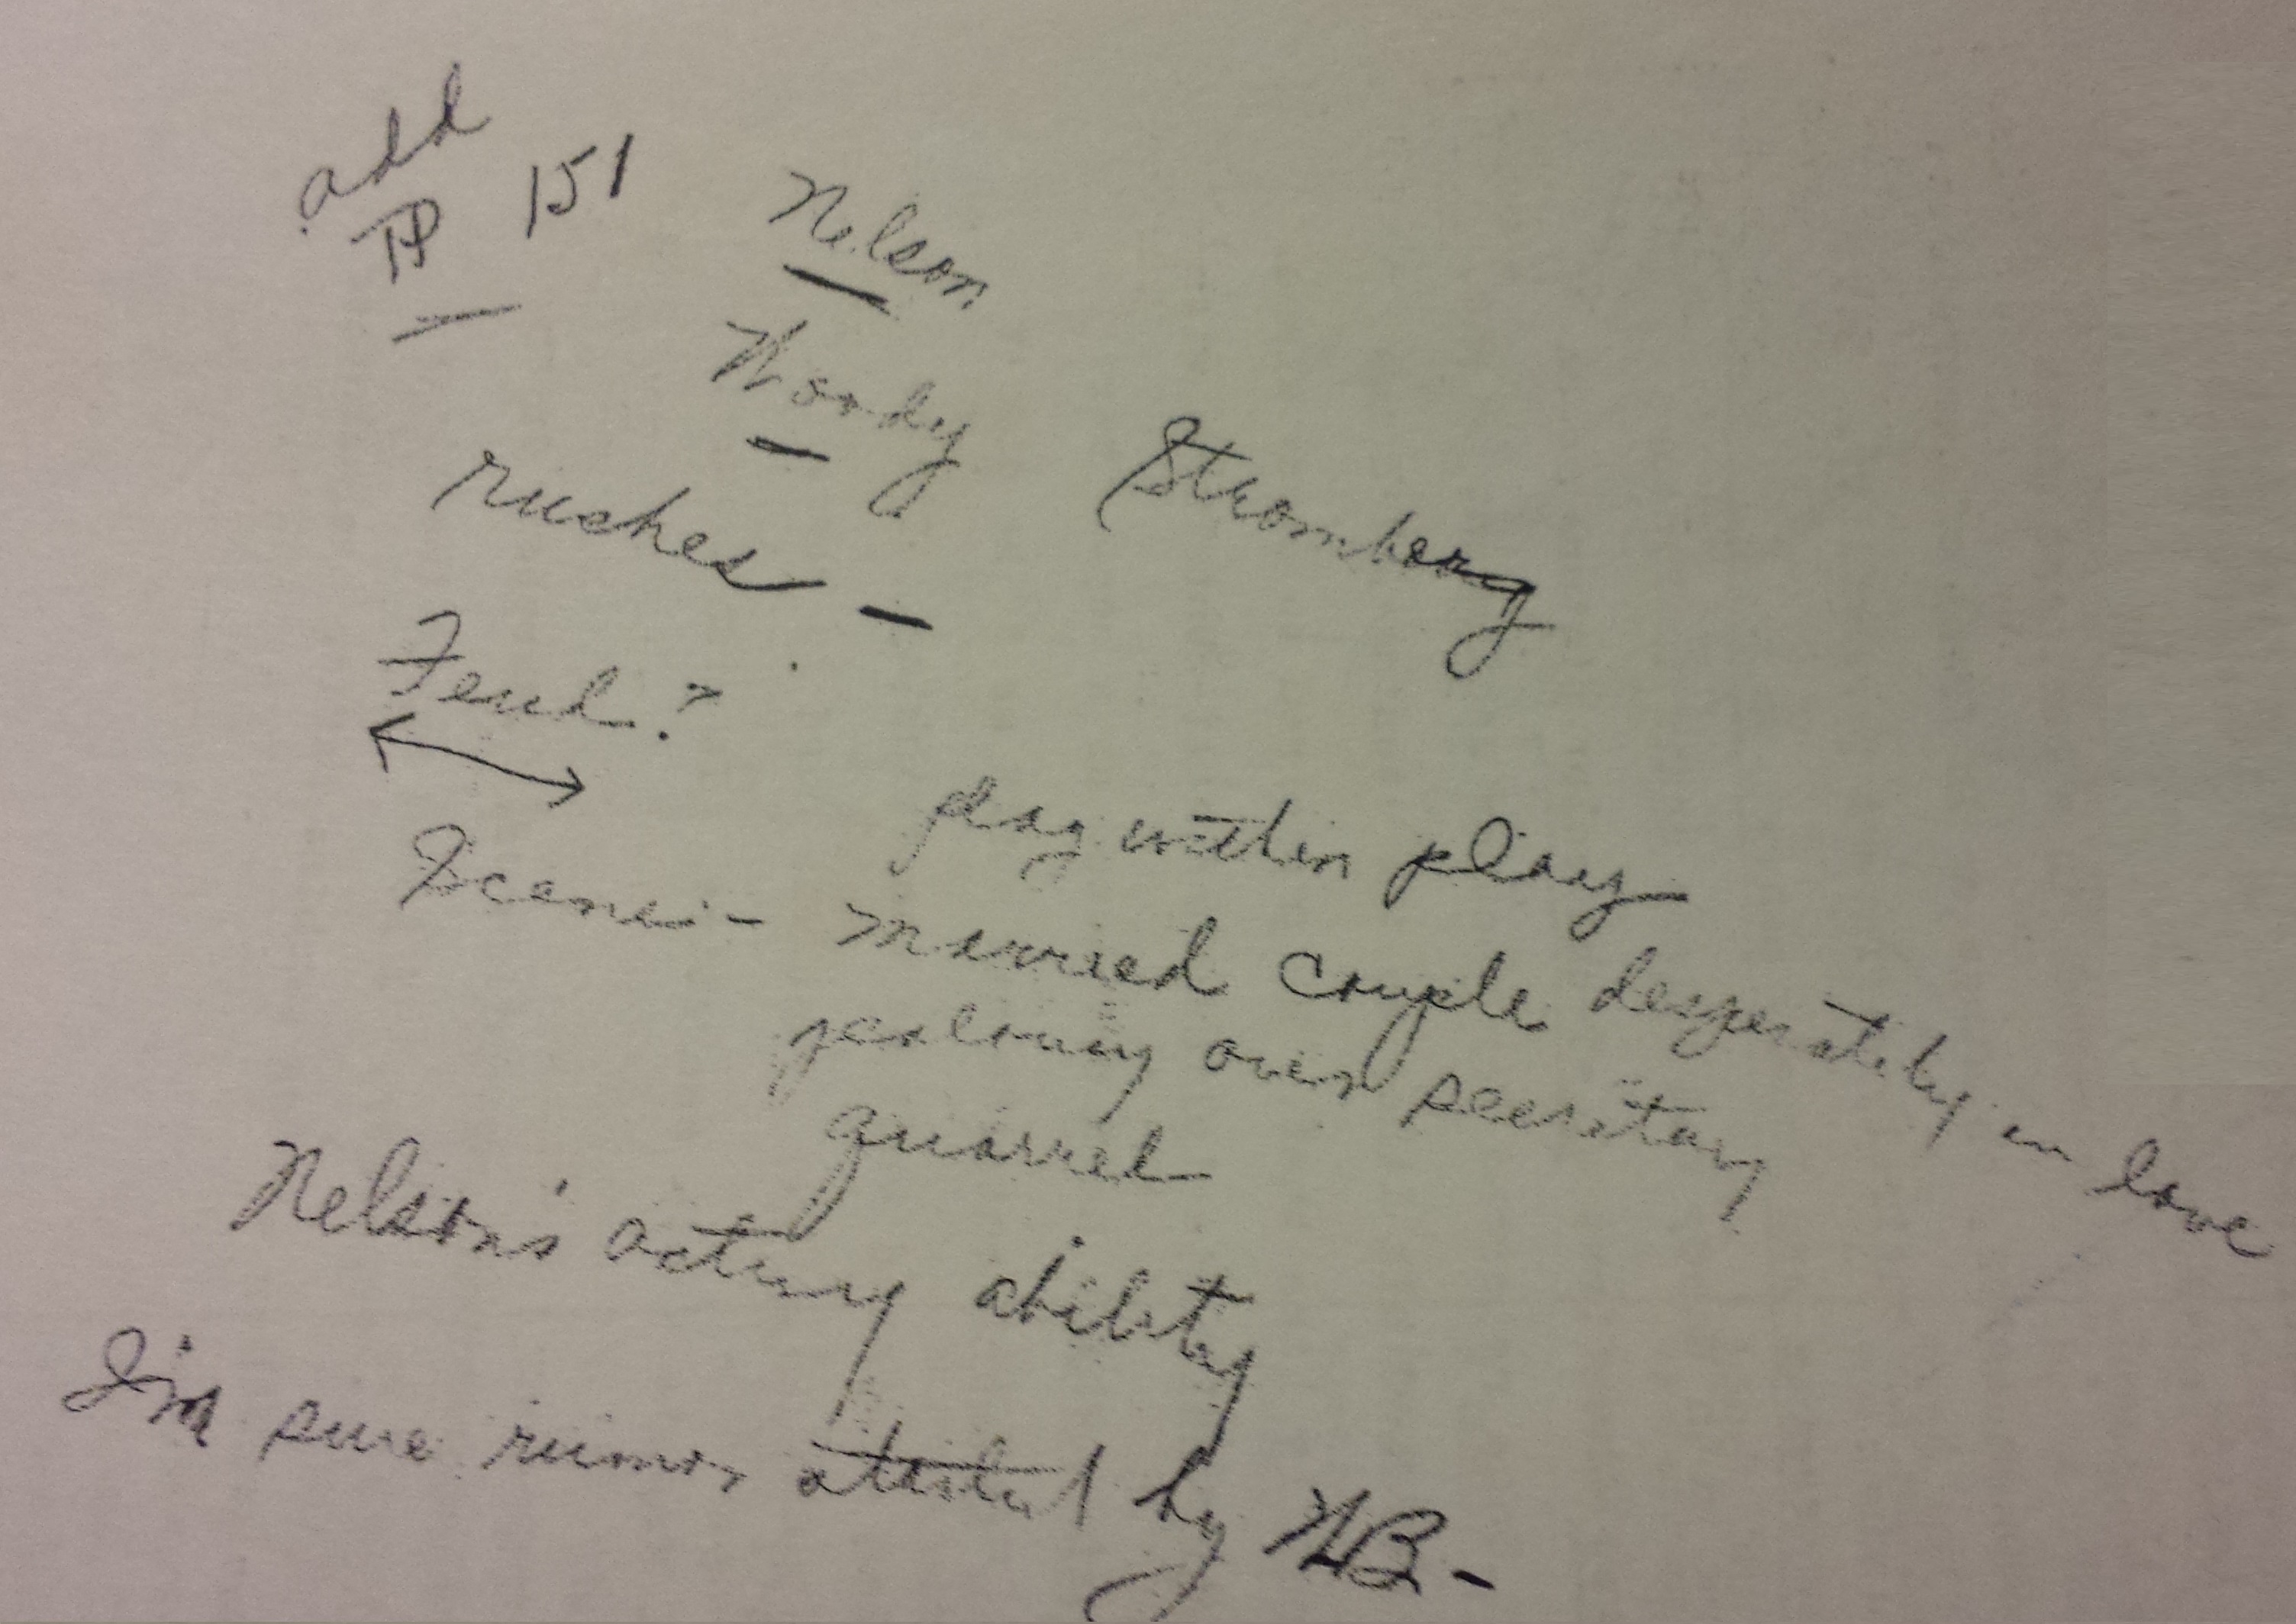 add
TP 151
Nelson
Woody
Stromberg
rushes -
Feud?
play within play
Scene:- married couple desperately in love
jealousy over secretary
quarrel
Nelson's acting ability
I'm sure rumor started by